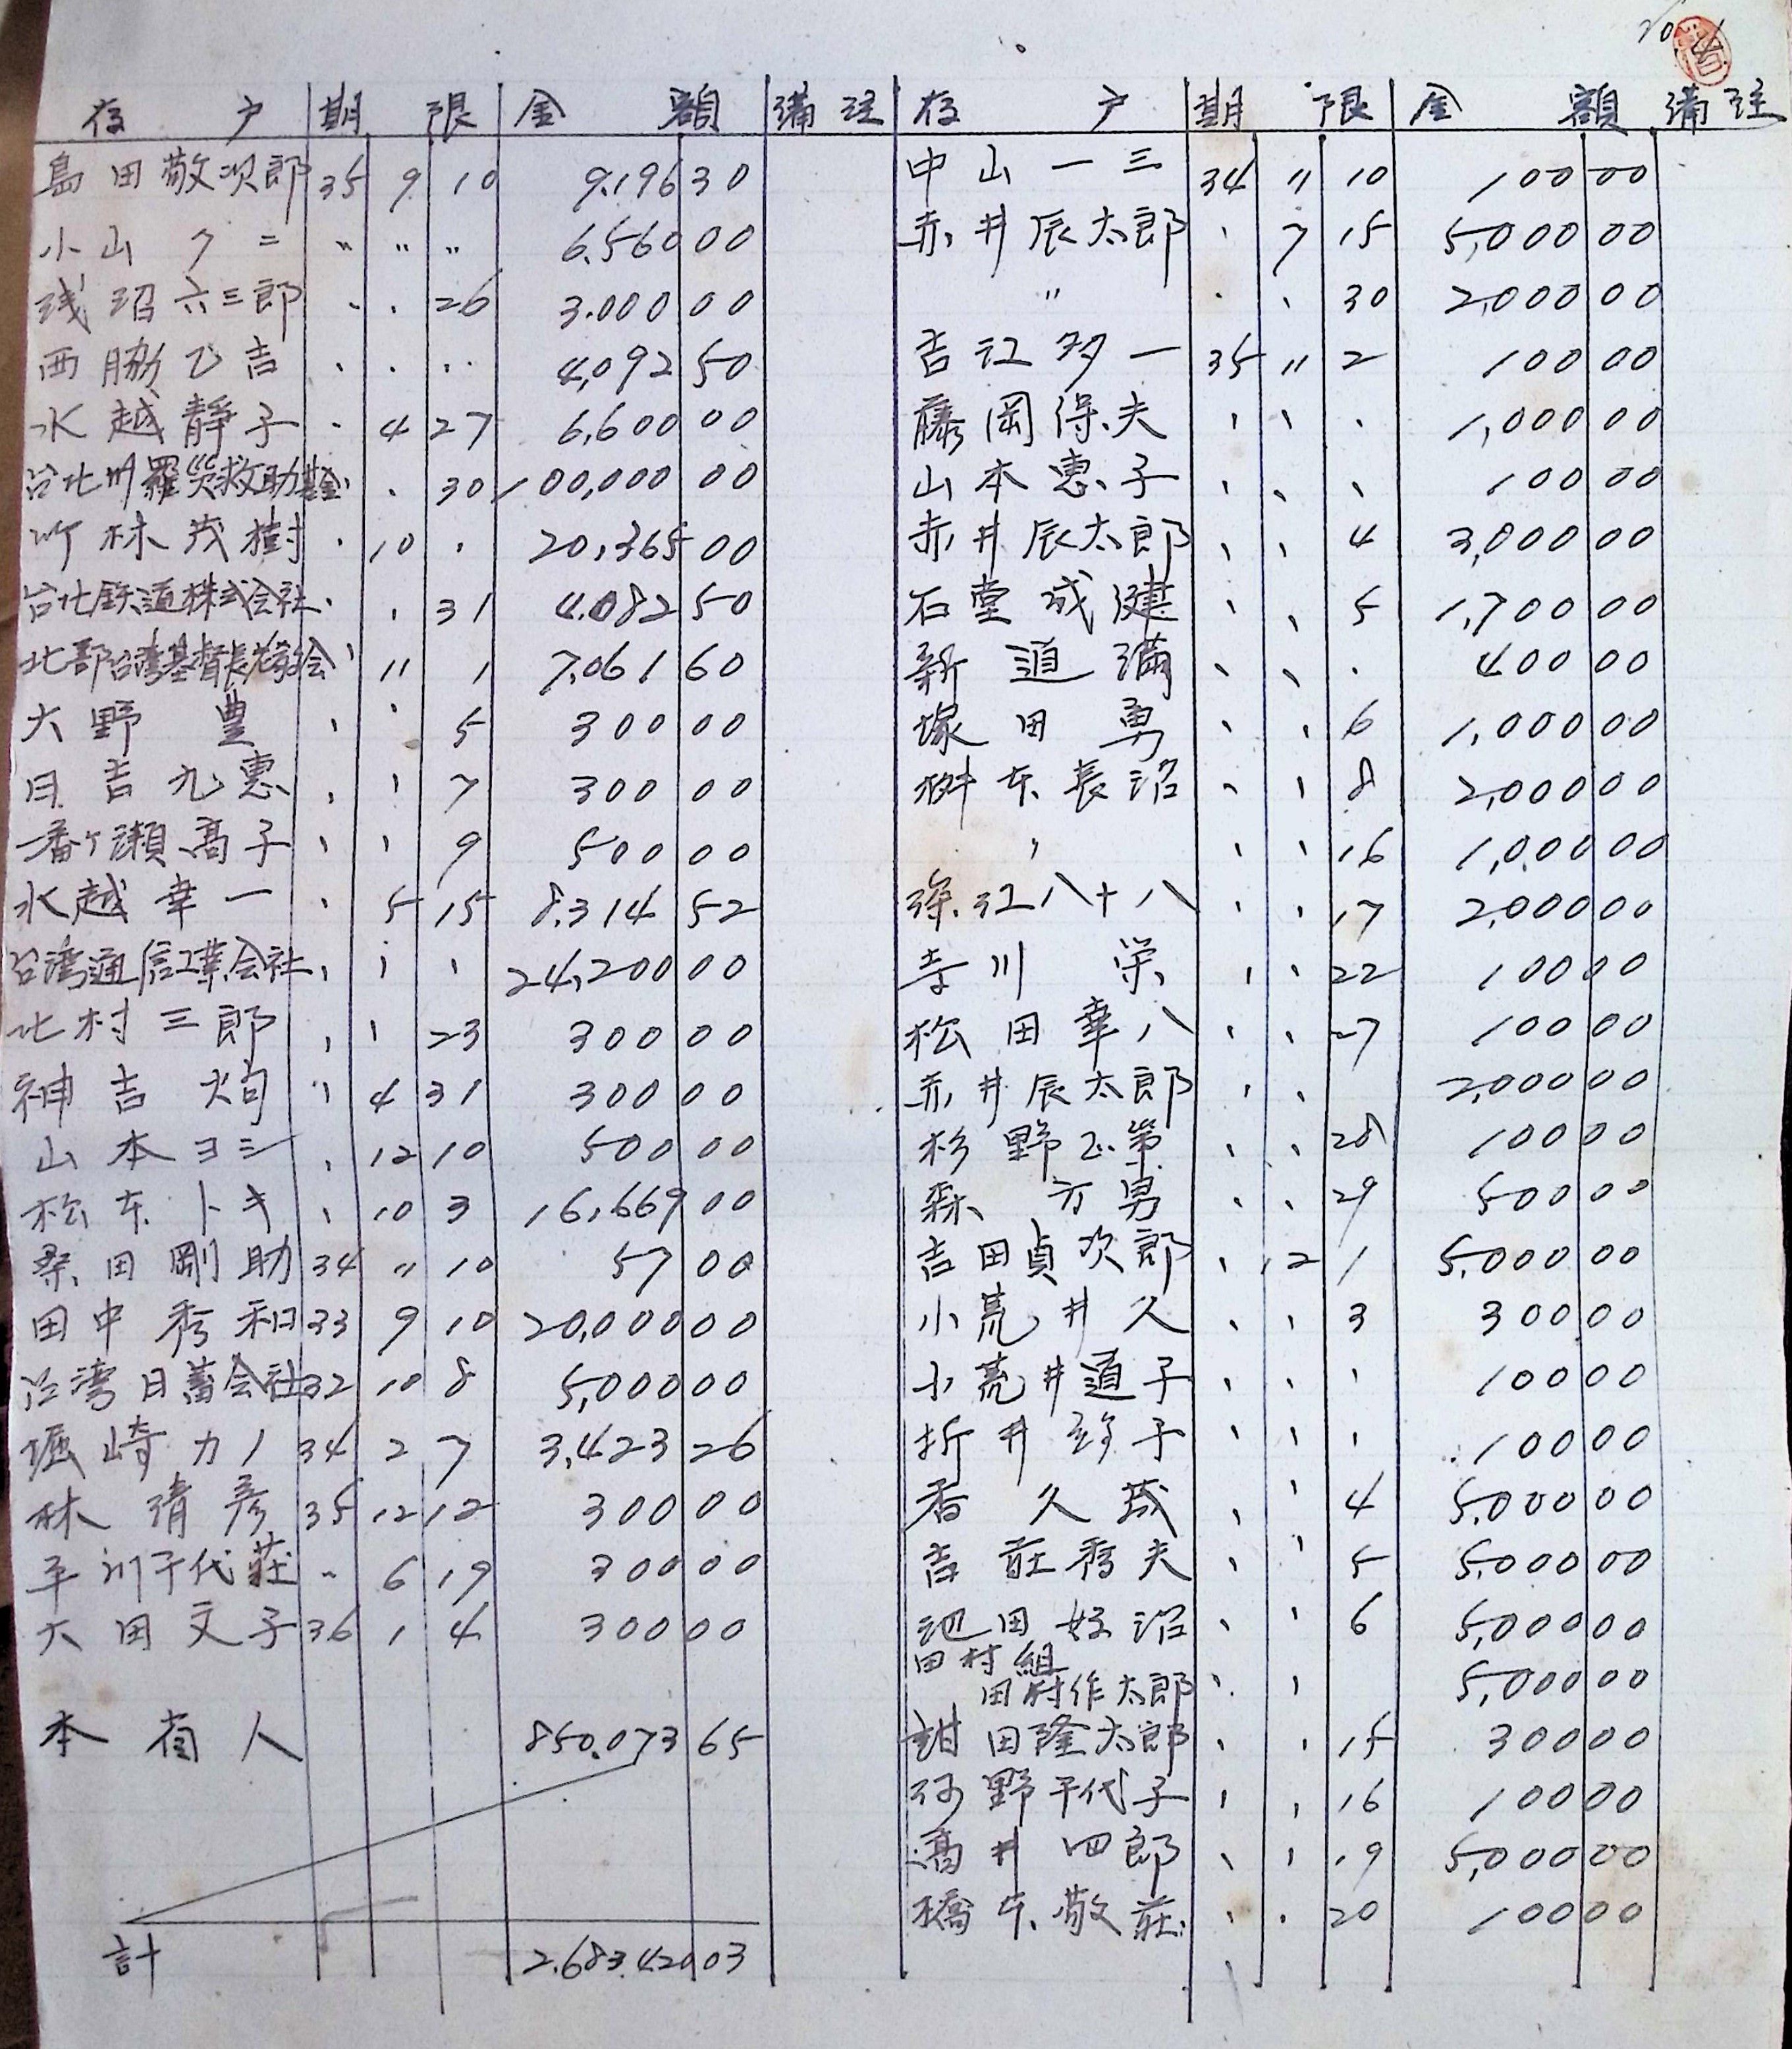 存戶 期限 金額 備註
島田敬次郎 35 9 10 9,196 30
小山クニ 〃 〃 〃 6,560 00
浅沼六三郎 、 、 26 3,000 00
西脇乙吉 、 、 、、 4,092 50
水越靜子 、 4 27 6,600 00
台北州羅災救助基金 、 、 30 100,000 00
竹林茂樹 、 10 、 20,365 00
台北鉄道株式会社 、 、 31 4,082 50
北部台湾基督長老教会 、 11 1 7,061 60
大野豊 、 、 5 300 00
日吉九惠 、 、 7 300 00
一番ケ瀬高子 、 、 9 500 00
水越幸一 、 5 15 8,314 52
台湾通信工業会社 、 、 、 24,200 00
北村三郎 、 、 23 300 00
神吉 、 4 31 300 00
山本ヨシ 、 12 10 500 00
松本トキ 、 10 3 16,669 00
桑田剛助 34 〃 10 57 00
田中秀和 33 9 10 20,000 00
台湾日蓄会社 32 10 8 5,000 00
堀崎カノ 34 2 7 3,423 26
林清彦 35 12 12 300 00
平川千代莊 〃 6 19 300 00
大田文子 36 1 4 300 00
本省人 850,073 65
計 2,683,420 03
存戶 期限 金額 備註
中山一三 34 〃 10 100 00
赤井辰太郎 、 7 15 5,000 00
〃 、 、 30 2,000 00
吉江多一 35 〃 2 100 00
藤岡得夫 、 、 、 1,000 00
山本惠子 、 、 、 100 00
赤井辰太郎 、 、 4 3,000 00
石堂成健 、 、 5 1,700 00
新道滿 、 、 、 400 00
塚田勇 、 、 6 1,000 00
桝本長治 、 、 8 2,000 00
、 、 、 16 1,000 00
江八十八 、 、 17 2,000 00
寺川栄 、 、 22 100 00
松田幸八 、 、 27 100 00
赤井辰太郎 、 、 2,000 00
杉野正 、 、 28 100 00
森方男 、 、 29 500 00
吉田貞次郎 、 12 1 5,000 00
小荒井久 、 、 3 300 00
小荒井道子 、 、 、 100 00
折井 子 、 、 、 100 00
香久成 、 、 4 5,000 00
吉莊秀夫 、 、 5 5,000 00
池田好治 、 、 6 5,000 00
田村組
田村作太郎 、 、 5,000 00
田隆太郎 、 、 15 300 00
河野千代子 、 、 16 100 00
高井四郎 、 、 19 5,000 00
橋本敬莊 、 、 20 100 00